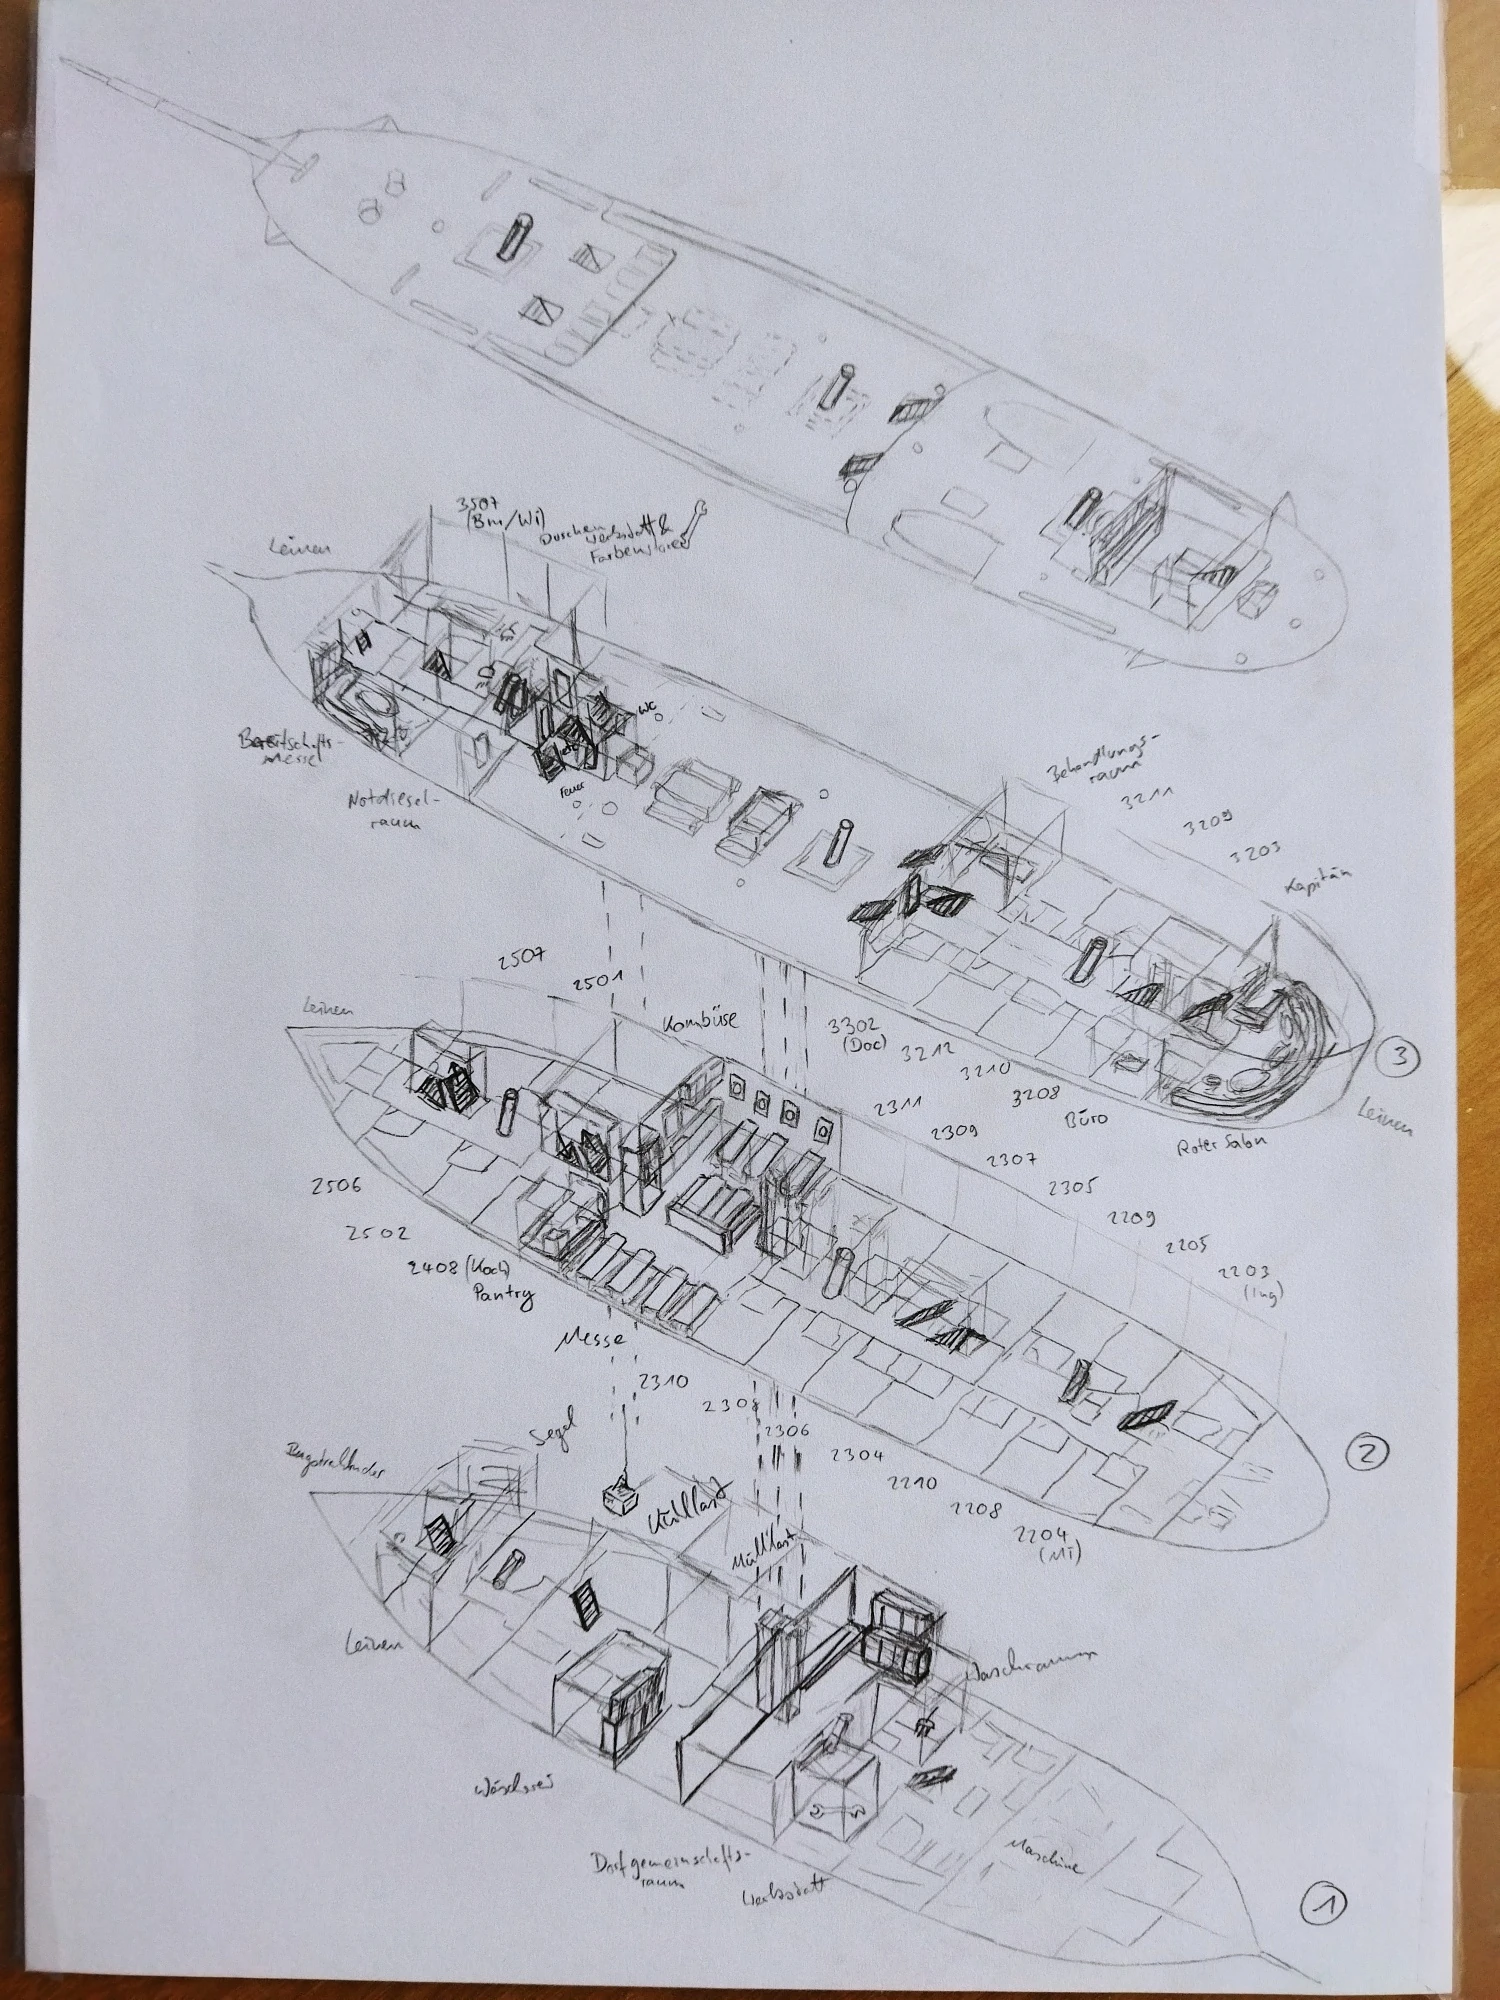 3507
(Bm/Wi)
Duschen
Werkstatt &
Farbenstore
Leinen
WC
etc
Feuer
Bereitschafts-
messe
Notdiesel-
raum
Behandlungs-
raum
3211
3209
3203
Kapitän
3302
(Doc)
3212
3210
3208
Büro
Roter Salon
Leinen
3
2507
2501
Leinen
Kombüse
2311
2309
2307
2305
2209
2205
2203
(Ing)
2506
2502
2408 (Koch)
Pantry
Messe
2310
2308
2306
2304
2210
2208
2204
(MT)
2
Bugstrahlruder
Segel
Kühllast
Müllast
Leinen
Waschraum
Wäscherei
Dorfgemeinschafts-
raum
Werkstatt
Maschine
1